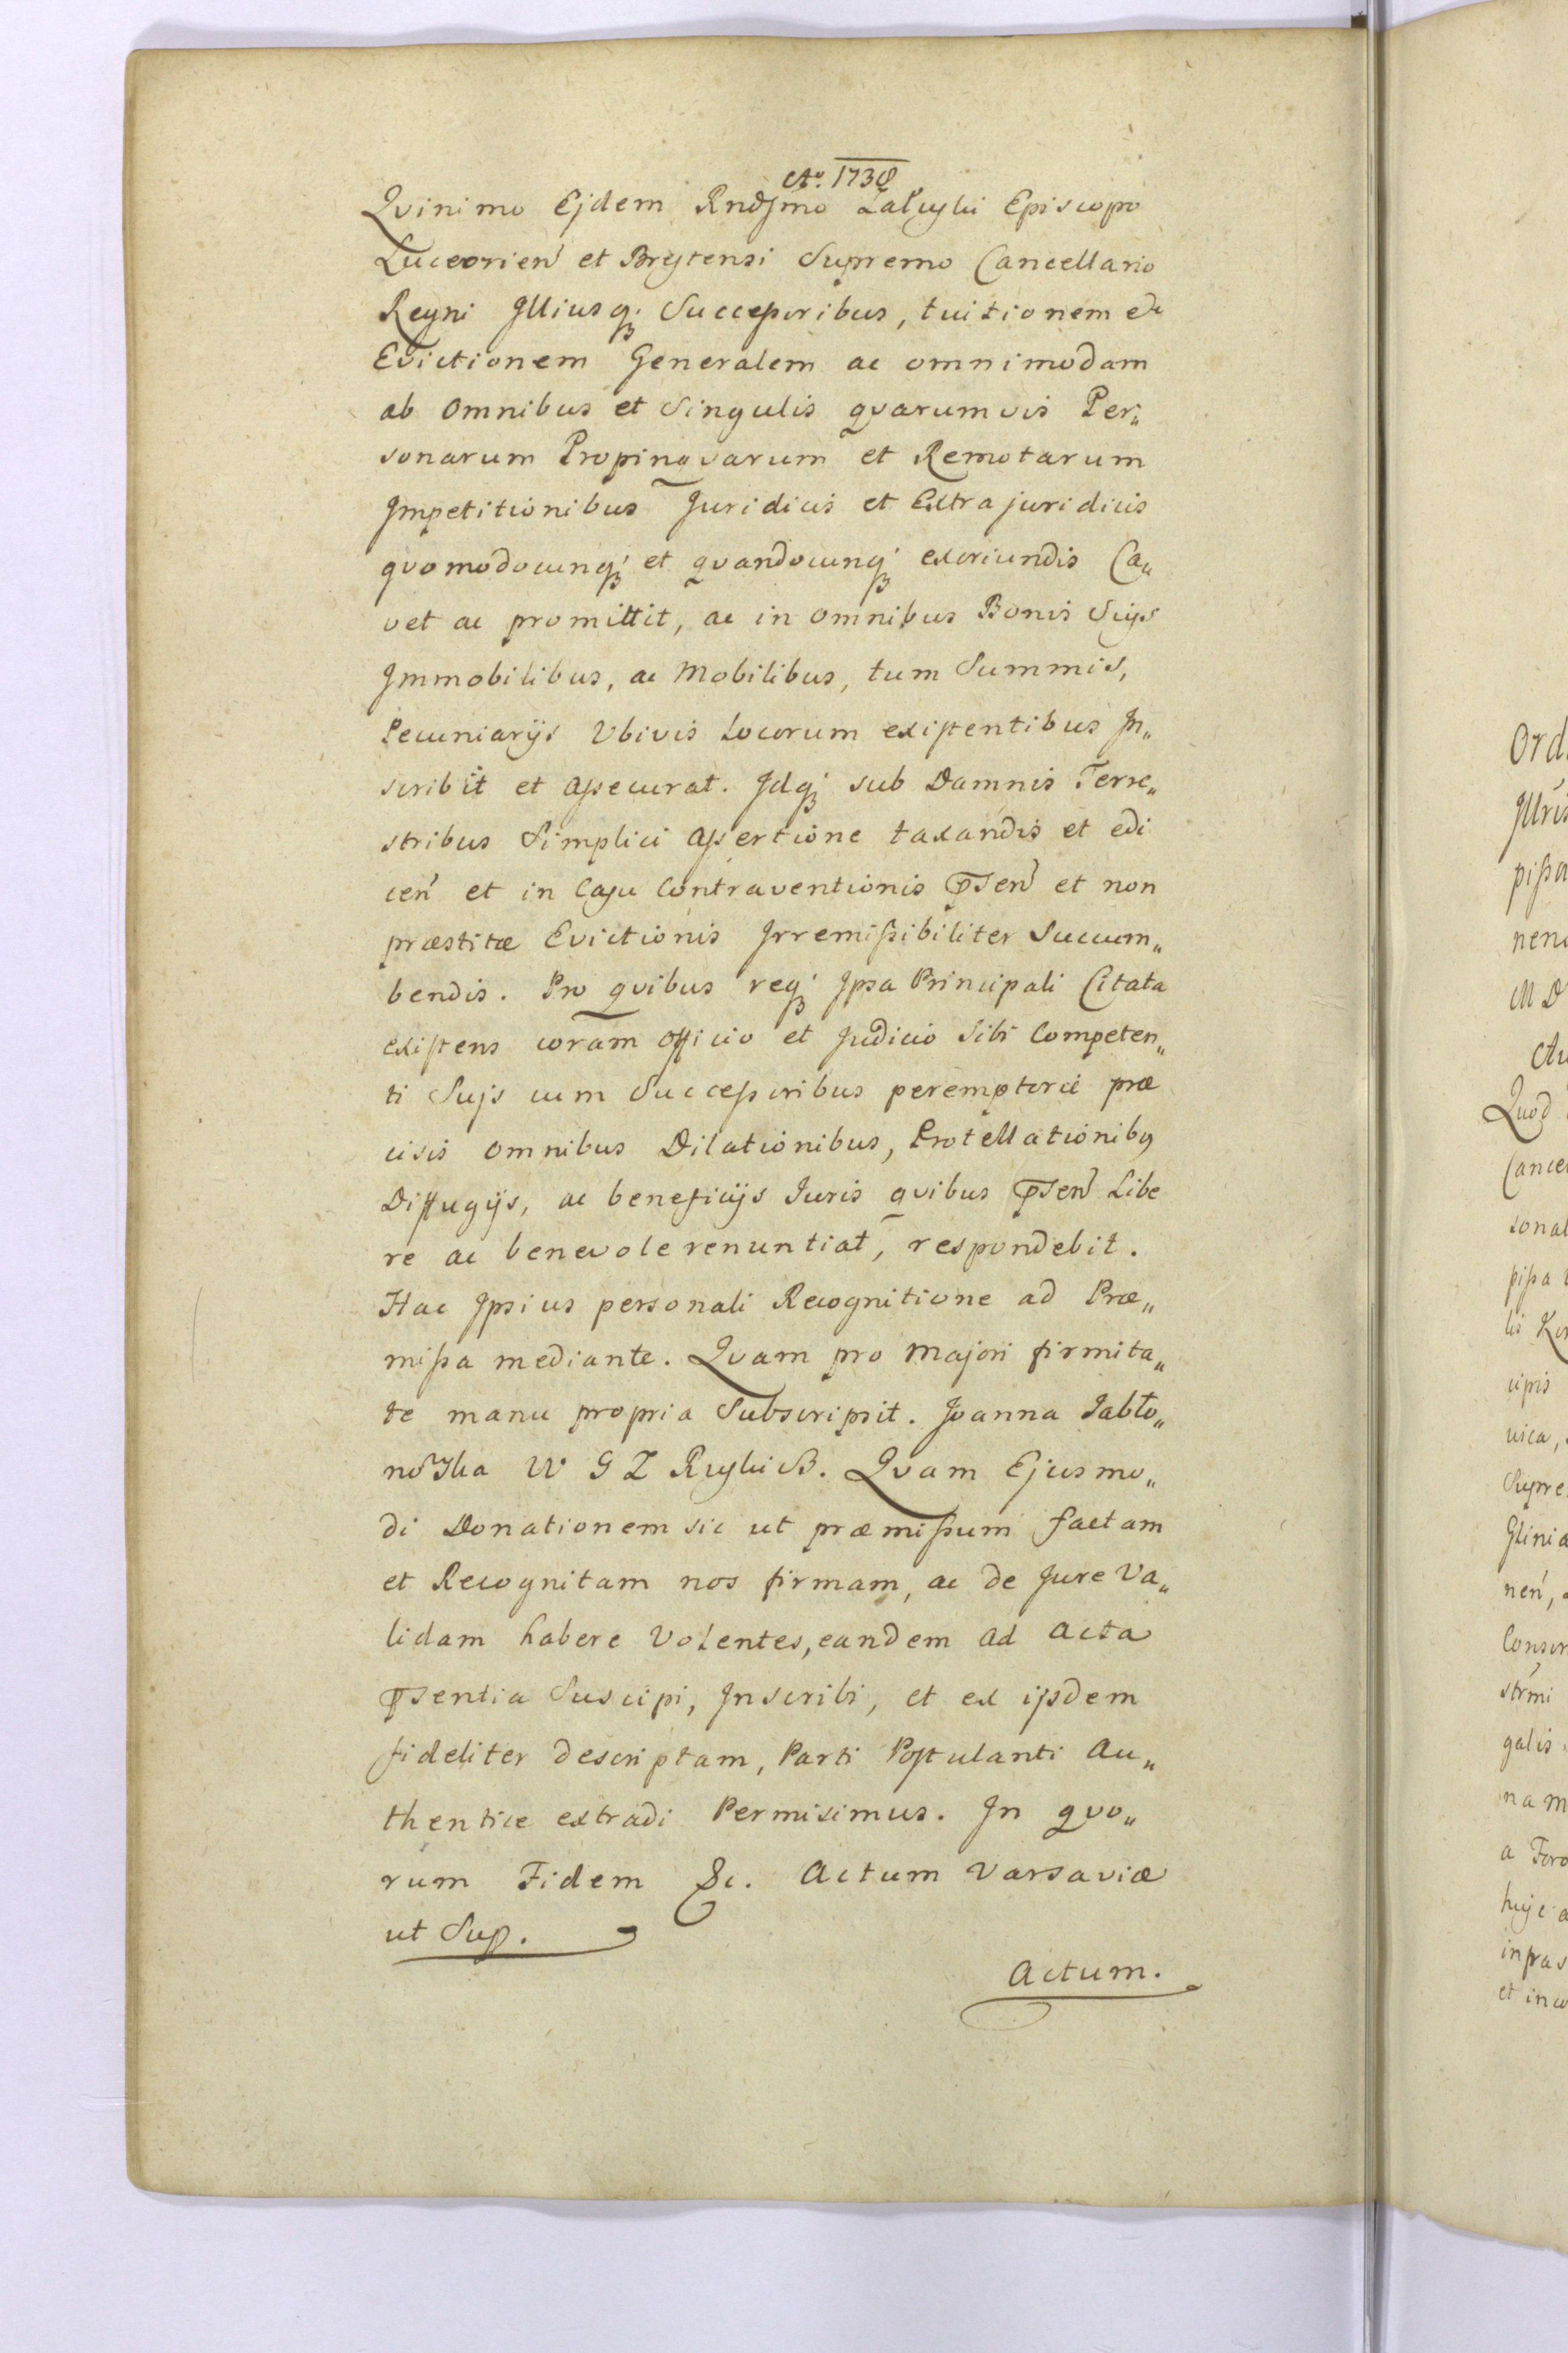 Ao. 1738
Qvinimo Ejdem Rndsmo Załuski Episcopo
Luceorien et Brestensi Supremo Cancellario
Regni Illiusq; Successoribus, tuitionem &
Evictionem Generalem ac omnimodam
ab omnibus et Singulis qvarumvis Per„
sonarum Propinqvarum et Remotarum
Impetitionibus Juridicis et Extrajuridicis
qvomodocunq; et qvandocunq; exoriundis Ca„
vet ac promittit, ac in omnibus Bonis Suijs
Immobilibus, ac Mobilibus, tum Summis,
Pecuniarijs Ubivis Locorum existentibus In„
scribit et assecurat. Idq; sub Damnis Terre„
stribus Simplici assertione taxandis et edi
cen et in Casu Contraventionis psen et non
præstitæ Evictionis Irremissibiliter Succum„
bendis. Pro qvibus req; Ipsa Principali Citata
existens coram officio et Judicio Sibi Competen„
ti Sujs cum Successoribus peremptorie præ
cisis omnibus Dilationibus, Protellationibus
Diffugijs, ac beneficijs Juris qvibus psen Libe
re ac benevole renuntiat, respondebit.
Hac Ipsius personali Recognitione ad Præ„
missa mediante. Qvam pro Majori firmita„
te manu propria Subscripsit. Joanna Jabło„
nowska W G Z Ruski B. Qvam Ejusmo„
di Donationem sic ut præmissum factam
et Recognitam nos firmam, ac de Jure Va„
lidam habere Volentes, eandem ad acta
psentia Suscipi, Inscribi, et ex ijsdem
fideliter descriptam, Parti Postulanti Au„
thentice extradi Permisimus. In qvo„
rum Fidem &c. Actum Varsaviæ
ut Sup.
Actum.
Ord
pissa
Quod
Cance
sonal
pissa
cipis
Supre
nen,
galis
nam
a Foro